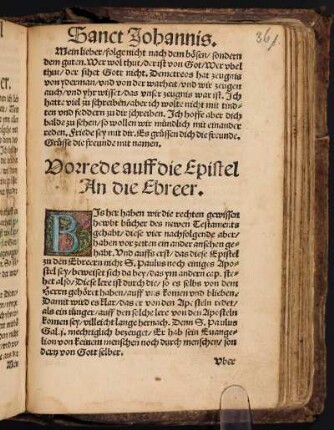 Sanct Johannis.
361
Mein lieber / folge nicht nach dem bösen / sondern
dem guten. Wer wol thut / der ist von Got / Wer vbel
thut / der sihet Gott nicht. Demetreos hat zeugnis
von yderman / vnd von der warheit / vnd wir zeugen
auch / vnd yhr wisset / das vnser zeugnis war ist. Ich
hatt / viel zu schreiben / aber ich wolte nicht mit tind-
ten vnd feddern zu dir schreiben. Ich hoffe aber dich
balde zu sehen / so wollen wir mündlich mit einander
reden. Friede sey mit dir. Es grüssen dich die freunde.
Grüsse die freunde mit namen.
Vorrede auff die Epistel
An die Ebreer.
BIs her haben wir die rechten gewissen
hewbt bücher des newen Testaments
gehabt / diese vier nachfolgende aber /
haben vor zeiten ein ander ansehen ge-
habt. Vnd auffs erst / das diese Epistel
zu den Ebreern nicht S. Paulus noch einiges Apo-
stel sey / beweiset sich da bey / das ym andern cap. ste-
het also / Diese lere ist durch die / so es selbs von dem
Herrn gehöret haben / auff vns komen vnd blieben /
Damit wird es klar / das er von den Aposteln redet /
als ein iünger / auff den solche lere von den Aposteln
komen sey / villeicht lange hernach. Denn S. Paulus
Gal. j. mechtiglich bezeuget / Er hab sein Euange-
lion von keinem menschen noch durch menschen / son
dern von Gott selber.
Vber